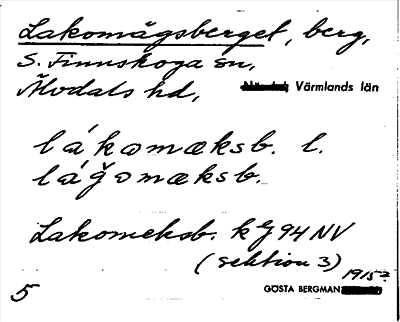 Lakomägsberget, berg,
S. Finnskoga sn,
Älvdals hd, Värmlands län
lákomæksb. l.
láǧomæksb.
Lakomeksb. kg 94 NV
(sektion 3)
1915?
5 GÖSTA BERGMAN